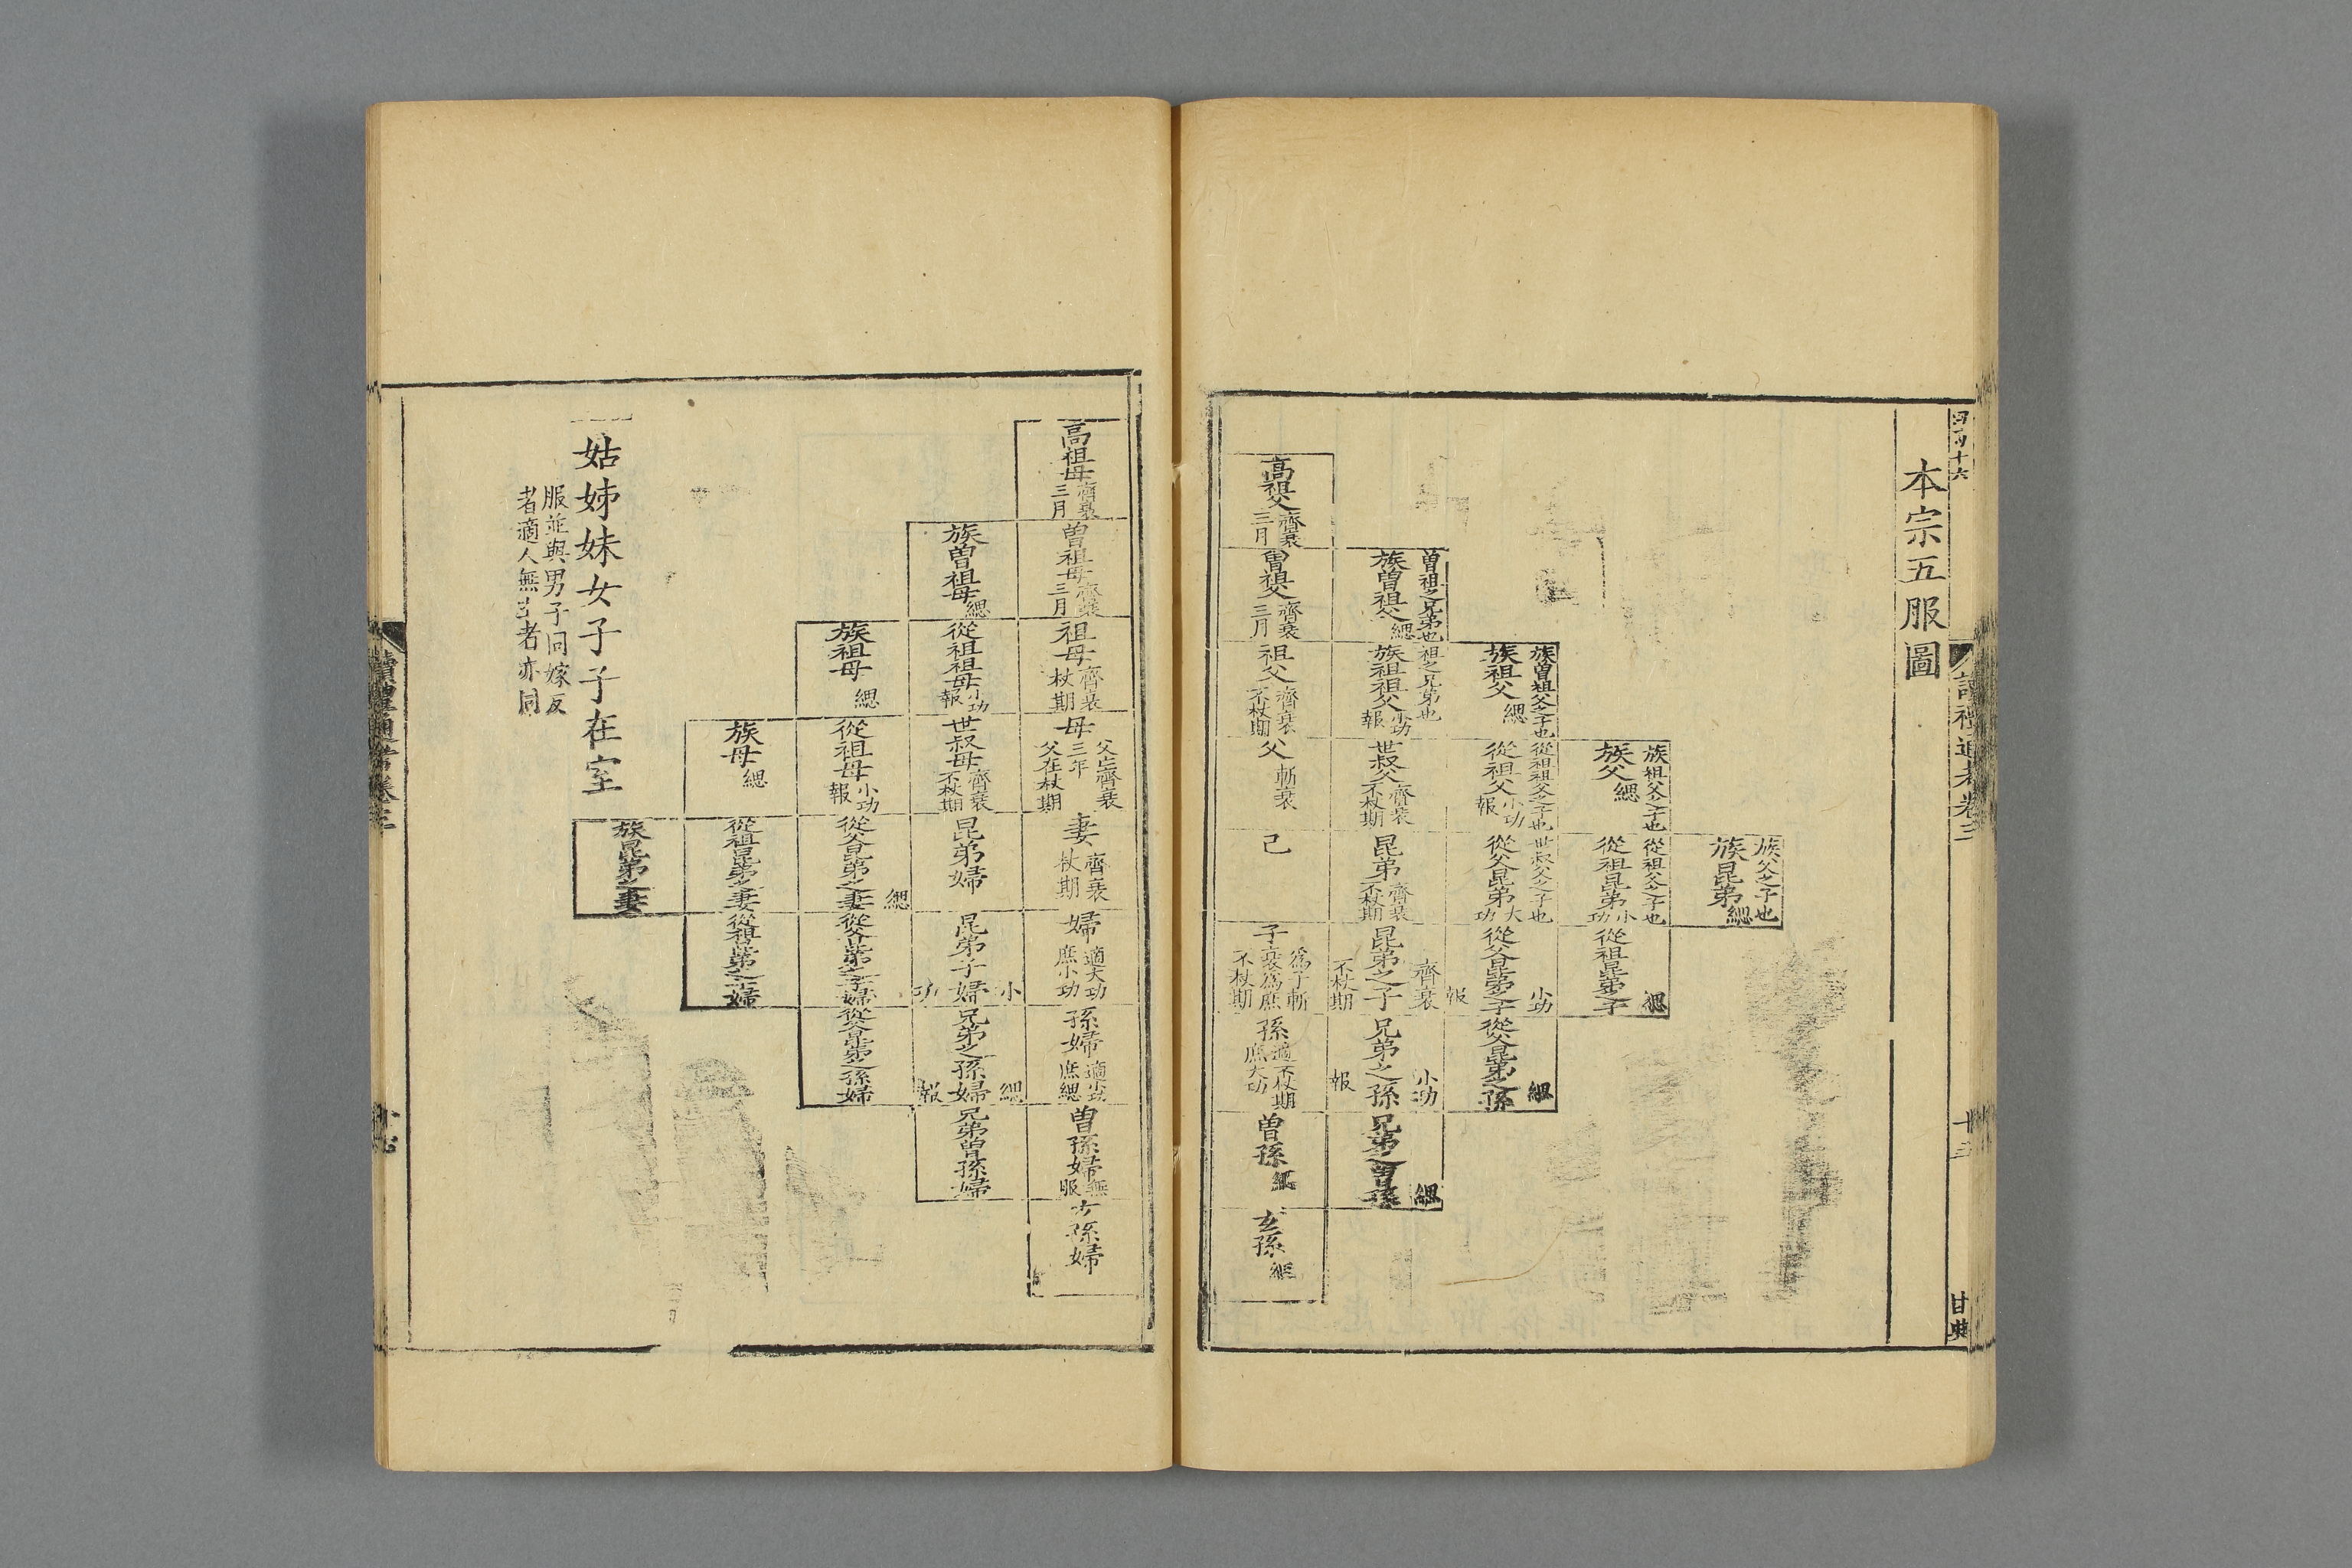 本宗五服圖
族父之子也
族昆弟緦
族祖父之子也
族父緦
從祖父之子也
從祖昆弟小功
從祖昆弟之子緦
族曾祖父之子也
族祖父緦
從祖祖父之子也
從祖父小功報
世叔父之子也
從父昆弟大功
從父昆弟之子小功報
從父昆弟之孫緦
曾祖之兄弟也
族曾祖父緦
祖之兄弟也
族祖祖父小功報
世叔父齊衰不杖期
昆弟齊衰不杖期
昆弟之子齊衰不杖期
兄弟之孫小功報
兄弟之曾孫緦
高祖父齊衰三月
曾祖父齊衰三月
祖父齊衰不杖期
父斬衰
己
子為子斬衰為庶不杖期
孫適不杖期庶大功
曾孫緦
玄孫緦
讀禮通考卷三
高祖母齊衰三月
曾祖母齊衰三月
祖母齊衰杖期
母父亡齊衰三年父在杖期
妻齊衰杖期
婦適大功庶小功
孫婦適小功庶緦
曾孫婦無服
孫婦
族曾祖母緦
從祖祖母小功報
世叔母齊衰不杖期
昆弟婦
昆弟子婦小功
兄弟之孫婦緦報
兄弟曾孫婦
族祖母緦
從祖母小功報
從父昆弟之妻緦
從父昆弟之子婦
從父昆弟之孫婦
族母緦
從祖昆弟之妻
從祖昆弟之子婦
族昆弟之妻
姑姊妹女子子在室
服並與男子同嫁反
者適人無主者亦同